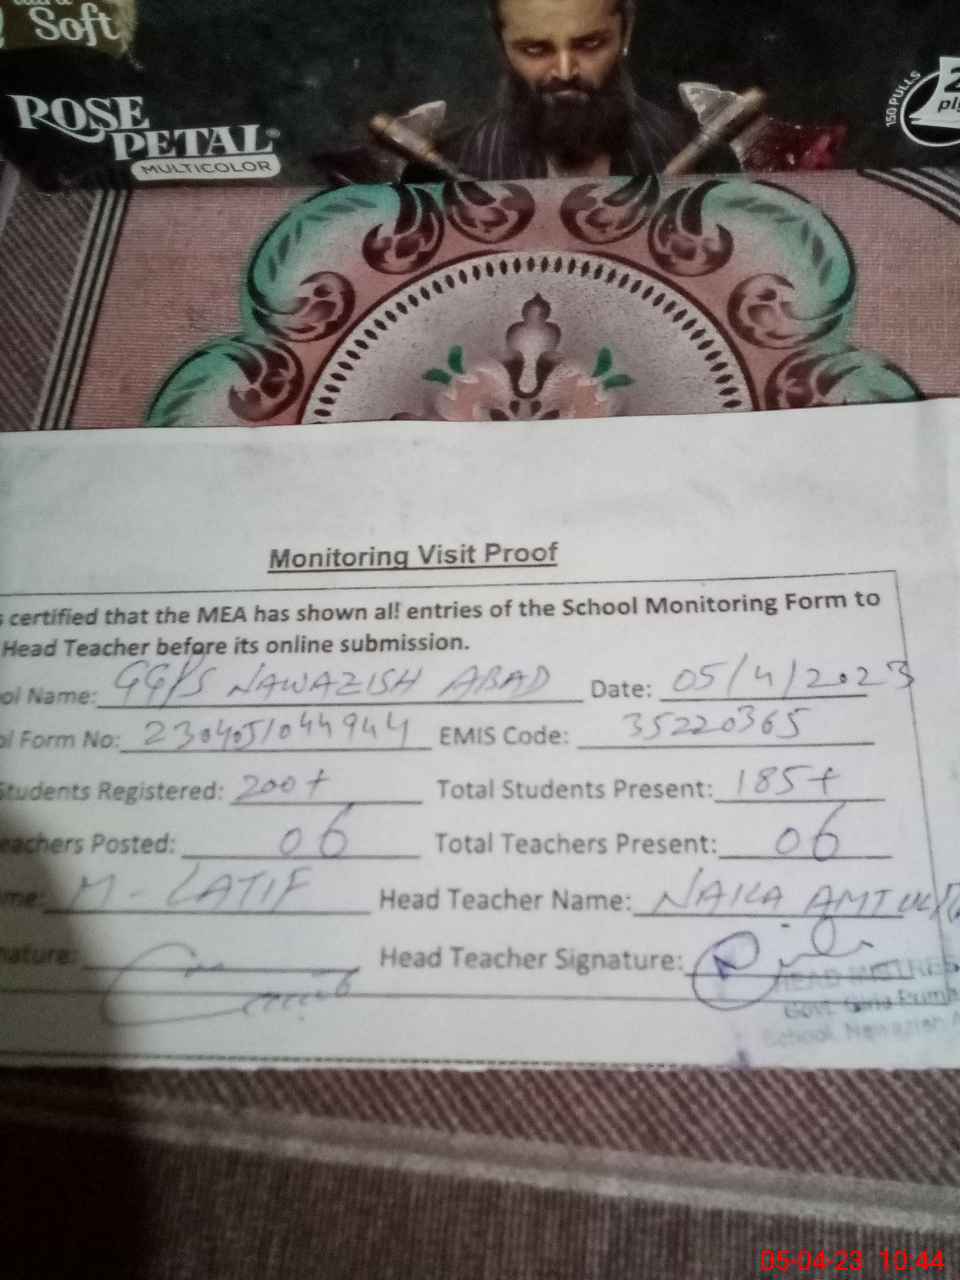 Soft
ROSE
PETAL
MULTICOLOR
150 PULLS
2
ply
Monitoring Visit Proof
certified that the MEA has shown all entries of the School Monitoring Form to
Head Teacher before its online submission.
Name: GGPS NAWAZISH ABAD Date: 05/4/2023
Form No: 230405/044944 EMIS Code: 35220365
Students Registered: 200+ Total Students Present: 185+
Posted: 06 Total Teachers Present: 06
M-LATIF Head Teacher Name: NAILA AMTUL
Head Teacher Signature:
HEAD
Govt. Girls
School
05-04-23 10:44